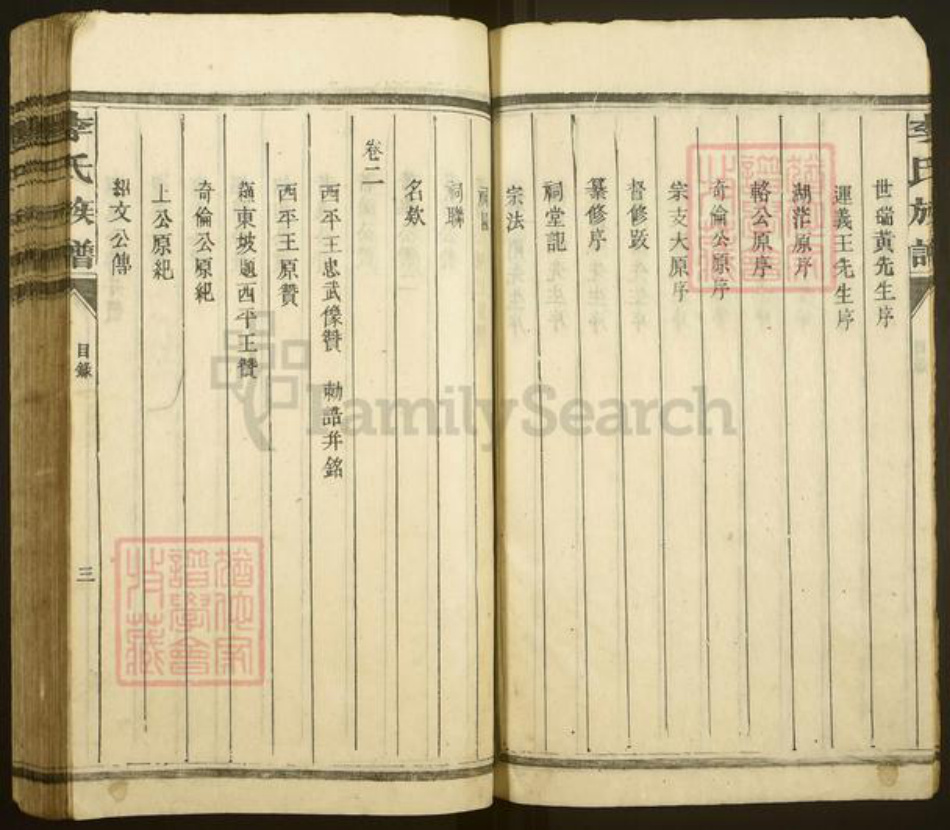 世瑞黃先生序
運義王先生序
湖茫原序
輅公原序
奇倫公原序
宗支大原序
督修跋
纂修序
祠堂記
宗法
祠聯
名欵
卷二
西平王忠武像贊 勅誥并銘
西平王原贊
蘓東坡題西平王贊
奇倫公原紀
上公原紀
紹文公傳
李氏族譜
目錄
三
FamilySearch